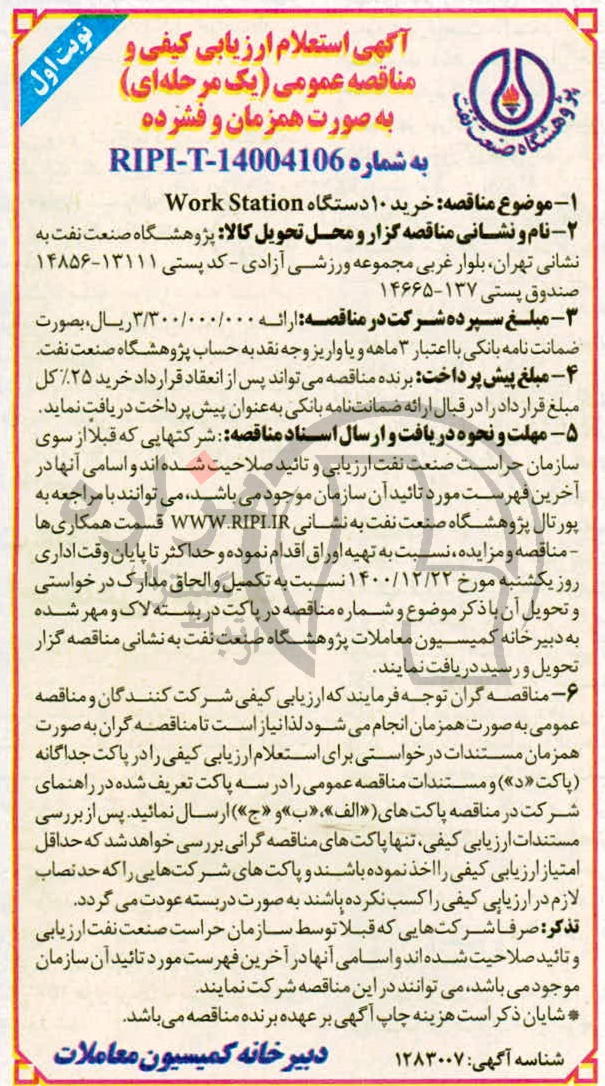 نوبت اول
آگهی استعلام ارزیابی کیفی و
مناقصه عمومی (یک مرحله‌ای)
به صورت همزمان و فشرده
به شماره RIPI-T-14004106
پژوهشگاه صنعت نفت
۱- موضوع مناقصه: خرید ۱۰ دستگاه Work Station
۲- نام و نشانی مناقصه گزار و محل تحویل کالا: پژوهشگاه صنعت نفت به
نشانی تهران، بلوار غربی مجموعه ورزشی آزادی - کد پستی ۱۳۱۱۱-۱۴۸۵۶
صندوق پستی ۱۳۷-۱۴۶۶۵
۳- مبلغ سپرده شرکت در مناقصه: ارائه ۳/۳۰۰/۰۰۰/۰۰۰ ریال، بصورت
ضمانت نامه بانکی با اعتبار ۳ ماهه و یا واریز وجه نقد به حساب پژوهشگاه صنعت نفت.
۴- مبلغ پیش پرداخت: برنده مناقصه می تواند پس از انعقاد قرارداد خرید ۲۵٪ کل
مبلغ قرارداد را در قبال ارائه ضمانت‌نامه بانکی به‌عنوان پیش پرداخت دریافت نماید.
۵- مهلت و نحوه دریافت و ارسال اسناد مناقصه: : شرکتهایی که قبلاً از سوی
سازمان حراست صنعت نفت ارزیابی و تائید صلاحیت شده اند و اسامی آنها در
آخرین فهرست مورد تائید آن سازمان موجود می باشد، می توانند با مراجعه به
پورتال پژوهشگاه صنعت نفت به نشانی WWW.RIPI.IR قسمت همکاری ها
- مناقصه و مزایده، نسبت به تهیه اوراق اقدام نموده و حداکثر تا پایان وقت اداری
روز یکشنبه مورخ ۱۴۰۰/۱۲/۲۲ نسبت به تکمیل و الحاق مدارک درخواستی
و تحویل آن با ذکر موضوع و شماره مناقصه در پاکت در بسته لاک و مهر شده
به دبیرخانه کمیسیون معاملات پژوهشگاه صنعت نفت به نشانی مناقصه گزار
تحویل و رسید دریافت نمایند.
۶- مناقصه گران توجه فرمایند که ارزیابی کیفی شرکت کنندگان و مناقصه
عمومی به صورت همزمان انجام می شود لذا نیاز است تا مناقصه گران به صورت
همزمان مستندات درخواستی برای استعلام ارزیابی کیفی را در پاکت جداگانه
(پاکت «د») و مستندات مناقصه عمومی را در سه پاکت تعریف شده در راهنمای
شرکت در مناقصه پاکت های («الف»، «ب» و «ج») ارسال نمائید. پس از بررسی
مستندات ارزیابی کیفی، تنها پاکت های مناقصه گرانی بررسی خواهد شد که حداقل
امتیاز ارزیابی کیفی را اخذ نموده باشند و پاکت های شرکت‌هایی را که حد نصاب
لازم در ارزیابی کیفی را کسب نکرده باشند به صورت دربسته عودت می گردد.
تذکر: صرفا شرکت‌هایی که قبلاً توسط سازمان حراست صنعت نفت ارزیابی
و تائید صلاحیت شده اند و اسامی آنها در آخرین فهرست مورد تائید آن سازمان
موجود می باشد، می توانند در این مناقصه شرکت نمایند.
* شایان ذکر است هزینه چاپ آگهی بر عهده برنده مناقصه می باشد.
شناسه آگهی: ۱۲۸۳۰۰۷
دبیرخانه کمیسیون معاملات